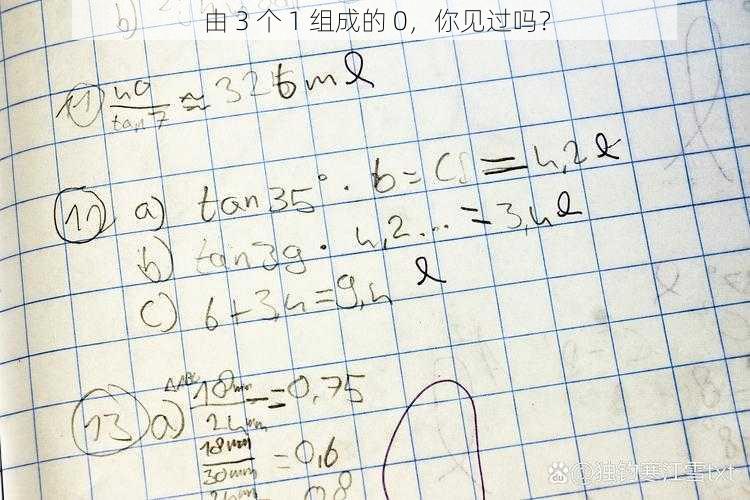 由 3 个 1 组成的 0，你见过吗？
b)
11) 40/tan7 ≈ 326ml
12) a) tan35° · 6 = = 4,2 l
b) tan39 · 4,2... = 3,4 l
c) 6 + 3,4 = 9,4 l
13) a) 18mm/24mm = 0,75
18mm/30mm = 0,6
0,8
@独钓寒江雪txt